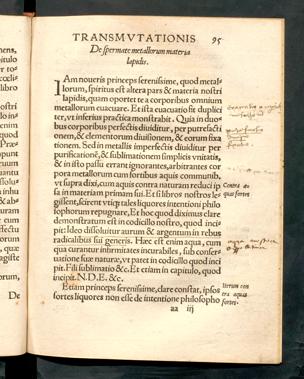 TRANSMVTATIONIS 95
De spermate metallorum materia
lapidis.
IAm noueris princeps serenissime, quod metal-
lorum, spiritus est altera pars & materia nostri
lapidis, quam oportet te a corporibus omnium
metallorum euacuare. Et ista euacuatio fit duplici
ter, vt inferius practica monstrabit. Quia in duo-
bus corporibus perfectis diuiditur, per putrefacti
onem, & elementorum diuisionem, & eorum fixa
tionem. Sed in metallis imperfectis diuiditur per
purificationē, & sublimationem simplicis vnitatis,
& in isto passu errant ignorantes, arbitrantes cor
pora metallorum cum fortibus aquis communib.
vt supra dixi, cum aquis contra naturam reduci ip
sa in materiam primam sui. Et si libros nostros le-
gissent, scirent vtiq; tales liquores intentioni philo
sophorum repugnare, Et hoc quod diximus clare
demonstratum est in codicillo nostro, quod inci-
pit: Ideo dissoluitur aurum & argentum in rebus
radicalibus sui generis. Hæc est enim aqua, cum
qua curantur infirmitates incurabiles, sub conser-
uatione suæ naturæ, vt patet in codicillo quod inci
pit. Fili sublimatio &c. Et etiam in capitulo, quod
incipit. N.D.E. &c.
Etiam princeps serenissime, clare constat, ipsos
fortes liquores non esse de intentione philosopho
aa iij
Contra a-
quas fortes
Iterum con
tra aquas
fortes.
De